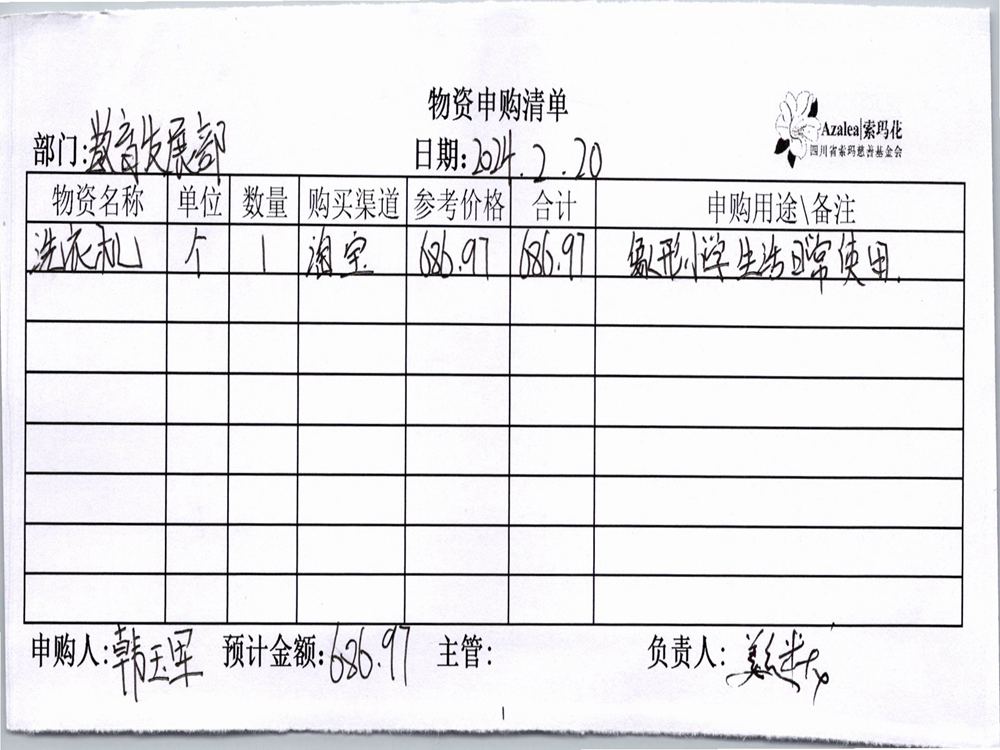 物资申购清单
Azalea|索玛花
四川省索玛慈善基金会
部门:教育发展部 日期:2024.2.20
物资名称 单位 数量 购买渠道 参考价格 合计 申购用途\备注
洗衣机 个 1 淘宝 686.97 686.97 象形小学生活日常使用.
申购人:韩玉军 预计金额:686.97 主管: 负责人:
1